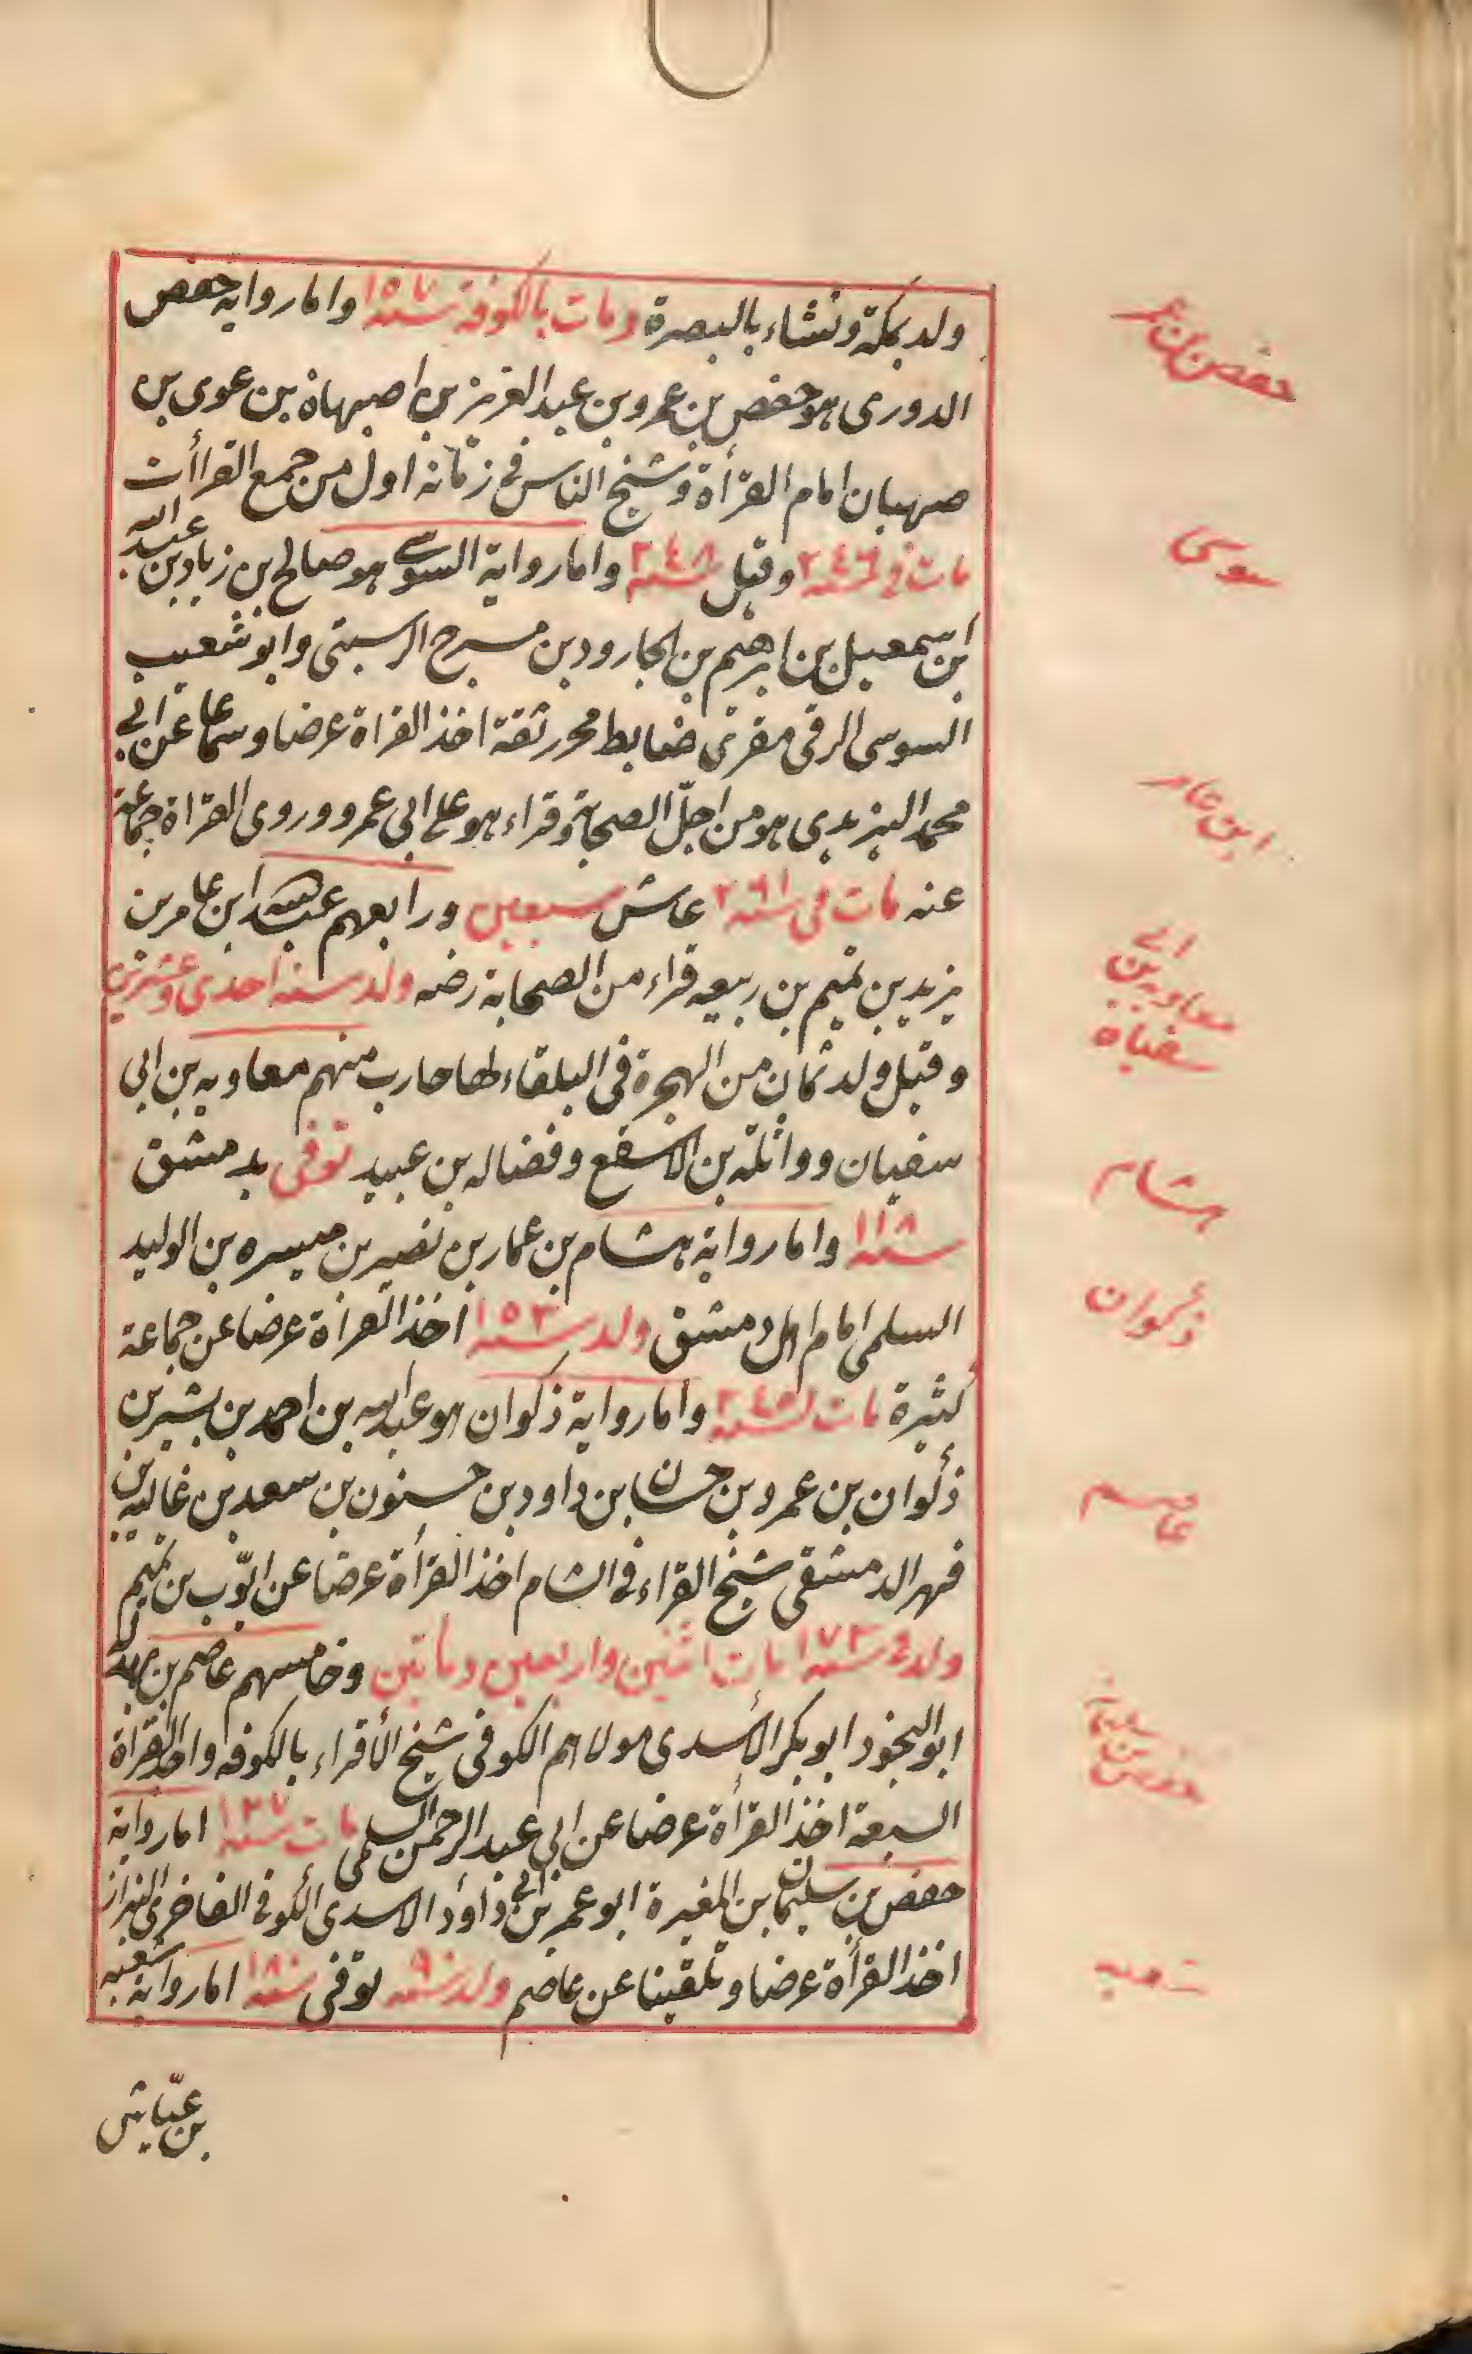 ولد بمكة ونشاء بالبصرة ومات بالكوفة سنة ١٥٧ واما رواية حفص
الدوري هو حفص بن عمرو بن عبد العزيز بن اصبهاة بن عوى بن
صهبان امام القرأة وشيخ الناس في زمانه اول من جمع القراأت
مات في سنة ٢٤٦ وقيل سنة ٢٤٨ واما رواية السوسي هو صالح بن زياد بن عبد الله
ابن اسمعيل بن ابرهيم بن الجارود بن مسرح الرستبى وابو شعيب
السوسى الرقى مقرئ ضابط محرر ثقة اخذ القراة عرضا وسماعا عن ابي
محمد اليزيدى هو من اجلّ الصحابة وقراء هو على ابى عمرو وروى القراة جماعة
عنه مات في سنة ٢٦١ عاش سبعين ورابعهم عبد الله ابن عامر بن
يزيد بن تميم بن ربيعه قراء من الصحابة رضه ولد سنة احدى وعشرين
وقيل ولد ثمان من الهجرة فى البلقاء لها حارب منهم معاويه بن ابى
سفيان وواثلة بن الاسقع وفضاله بن عبيد توفى بدمشق
سنة ١١٨ واما رواية هشام بن عمار بن نصير بن ميسره بن الوليد
السلمى امام اهل دمشق ولد سنة ١٥٣ اخذ القرأة عرضا عن جماعة
كثيرة مات سنة ٢٤٥ واما رواية ذكوان هو عبد الله بن احمد بن بشير بن
ذكوان بن عمرو بن حسان ابن داود بن حسنون بن سعد بن غالب بن
فهر الدمشقى شيخ القراء في الشام اخذ القرأة عرضا عن ايّوب بن تميم
ولد في سنة ١٧٣ مات اثنين واربعين ومأتين وخامسهم عاصم بن بهدلة
ابو النجود ابو بكر الأسدى مولاهم الكوفى شيخ الأقراء بالكوفه واحد القراة
السبعة اخذ القرأة عرضا عن ابى عبد الرحمن السلمى مات سنة ١٢٧ اما رواية
حفص بن سليمان بن المغيرة ابو عمر بن ابى داود الاسدى الكوفى الغاضرى البزاز
اخذ القرأة عرضا وتلقينا عن عاصم ولد سنة ٩٠ توفى سنة ١٨٠ اما رواية شعبه
بن عيّاش
حفص بن عمر
سوسى
ابن عامر
معاويه بن ابى
سفيان
هشام
ذكوان
عاصم
حفص بن سليمان
شعبه